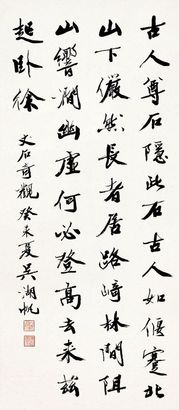 古人尊石隱此石古人如偃蹇北
山下儼然長者居路崎林間阻
山響澗幽虛何必登高去來茲
起臥徐
文石奇觀癸未夏吳湖帆